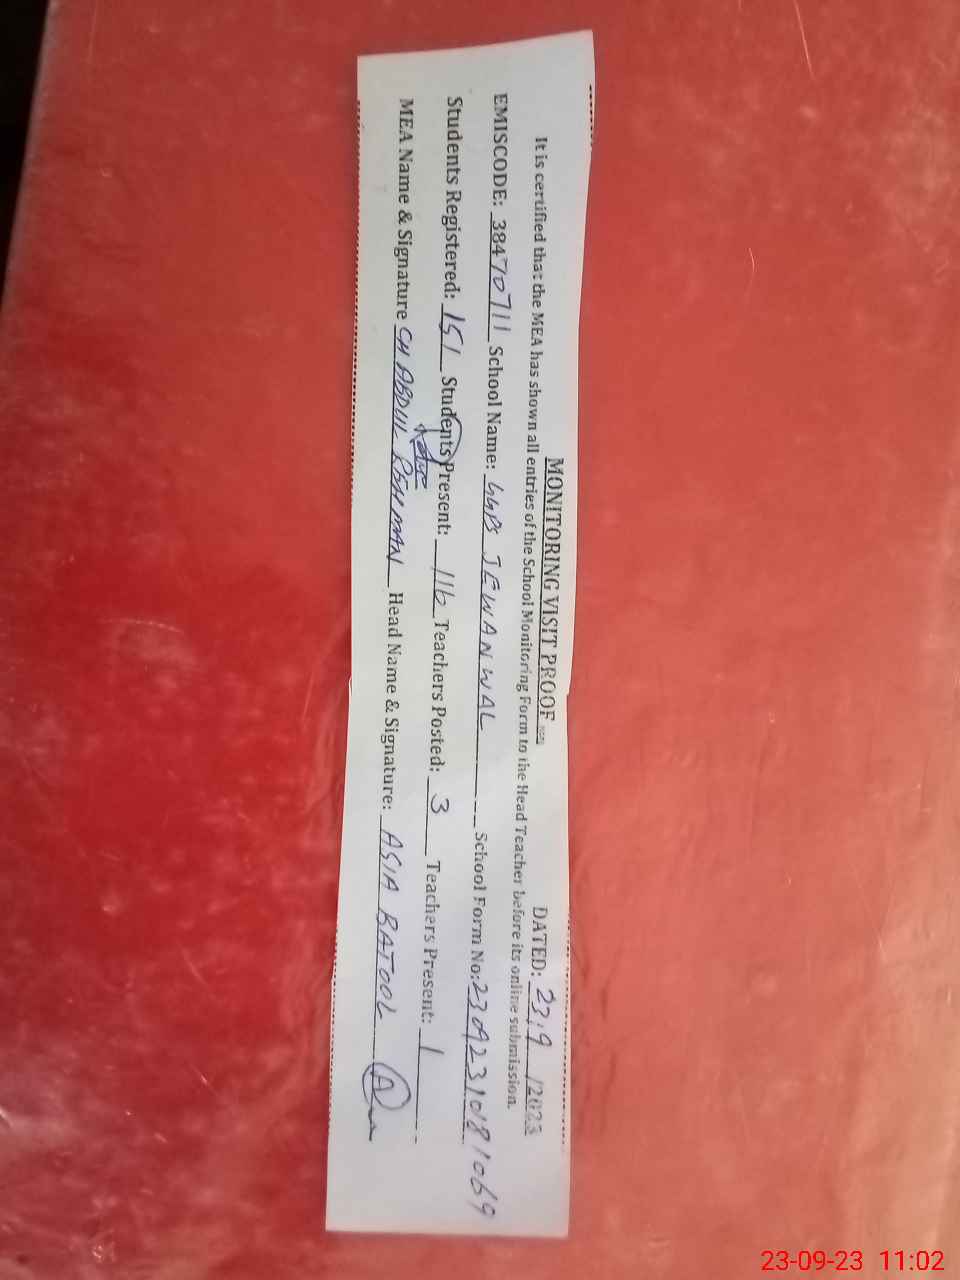 MONITORING VISIT PROOF
DATED: 23/9/2023
It is certified that the MEA has shown all entries of the School Monitoring Form to the Head Teacher before its online submission.
EMISCODE: 38470711 School Name: GGPS JEWANWAL School Form No: 23092310181069
Students Registered: 151 Students Present: 116 Teachers Posted: 3 Teachers Present: 1
MEA Name & Signature CH ABDUL REHMAN Head Name & Signature: ASIA BATOOL
23-09-23 11:02